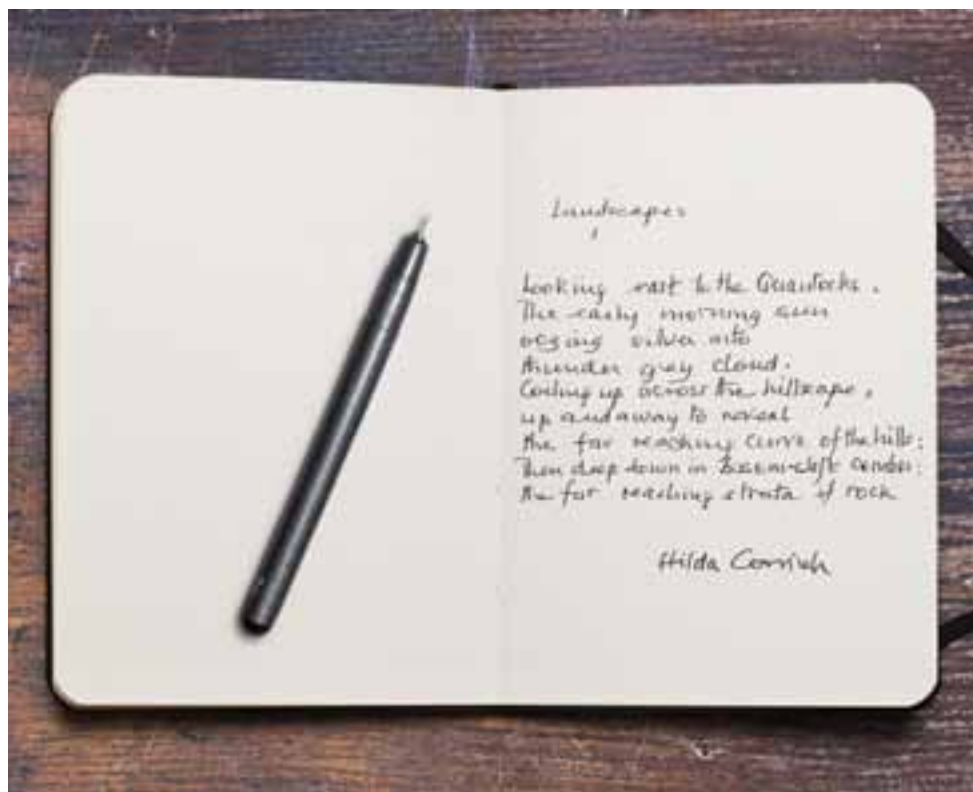 Landscapes
Looking east to the Quantocks.
The early morning sun
oozing silver into
thunder grey cloud.
Coiling up across the hillscape,
up and away to reveal
the far reaching curve of the hills:
Then deep down in
the far reaching strata of rock
Hilda Cornish